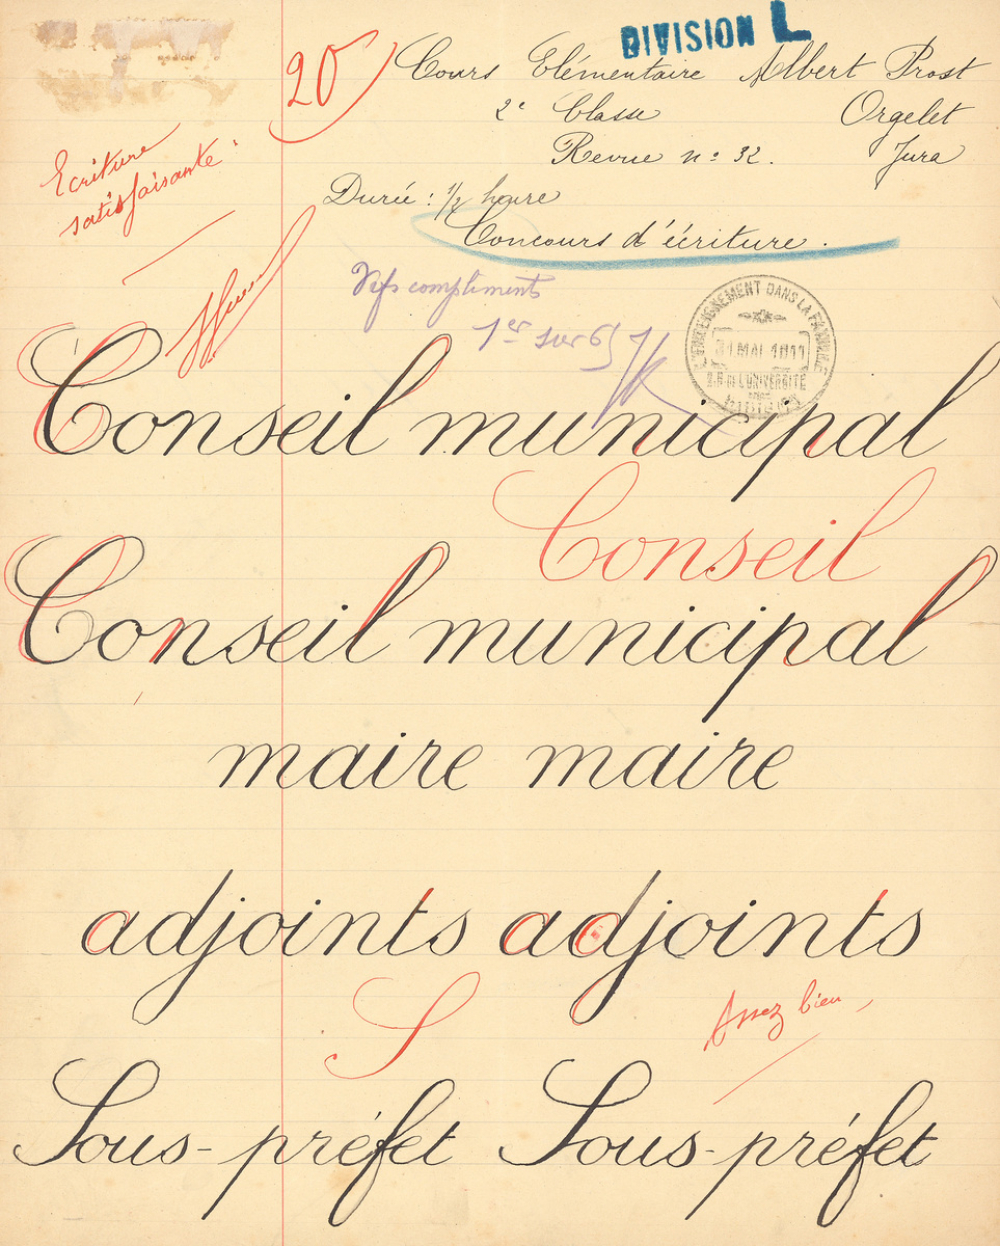 DIVISION L
20
Cours Elémentaire Albert Prost
2e Classe Orgelet
Revue no: 32. Jura
Ecriture
satisfaisante.
Durée : 1/2 heure
Concours d'écriture.
Vifs compliments
1er sur 65
L'ENSEIGNEMENT DANS LA FAMILLE
31 MAI 1911
R. DE L'UNIVERSITÉ
Conseil municipal
Conseil
Conseil municipal
maire maire
adjoints adjoints
S
Assez bien
Sous-préfet Sous-préfet